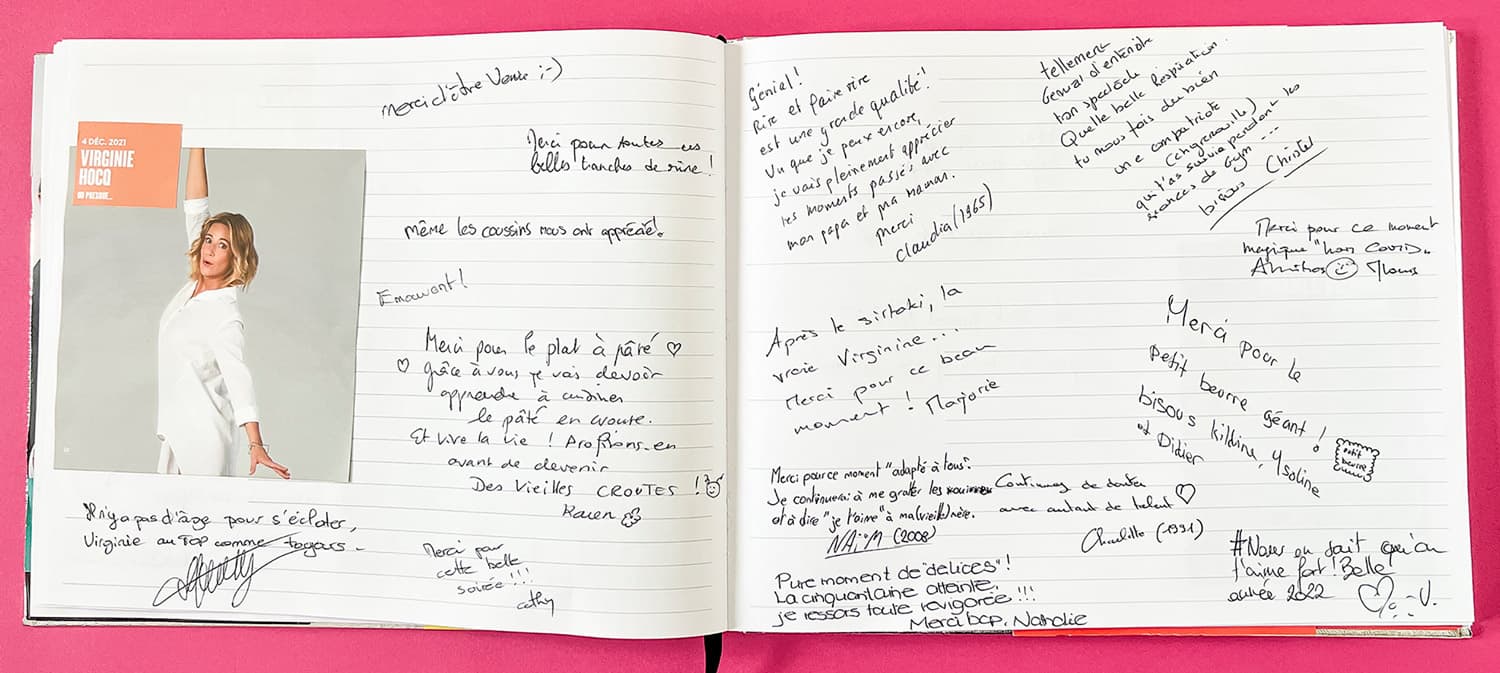 4 DÉC. 2021
VIRGINIE
HOCQ
OU PRESQUE...
merci d'être Venue ;-)
Merci pour toutes ces
belles tranches de rire !
même les coussins nous ont apprécié.
Emouvant !
Merci pour le plat à pâté ♡
♡ grâce à vous je vais devoir
apprendre à cuisiner
le pâté en croute.
Et vive la vie ! Profitons-en
avant de devenir
Des Vieilles CROUTES !
Karen
Il n'y a pas d'âge pour s'éclater,
Virginie au TOP comme
Merci pour
cette belle
soirée !!!
cathy
Génial !
Rire et faire rire
est une grande qualité !
Vu que je peux encore,
je vais pleinement apprécier
les moments passés avec
mon papa et ma maman.
Merci
Claudia (1965)
tellement
Génial d'entendre
ton spectacle
Quelle belle Respiration
tu nous fais du bien
une compatriote
qui t'as suivie pendant les
séances de Gym ---
bisous Christel
Merci pour ce moment
magique "hors Covid.
Après le sirtaki, la
vraie Virginine...
Merci pour ce beau
moment ! Marjorie
Merci pour le
Petit beurre géant !
bisous Kildine, Ysoline
et Didier
petit
beurre
Merci pour ce moment "adapté à tous".
Je continuerai à me gratter les
et à dire "je t'aime" à ma (vieille) mère.
NAïM (2008)
Continuez de
avec autant de talent ♡
Charlotte (1991)
Pure moment de "délices" !
La cinquantaine atteinte,
je ressors toute revigorée !!!
Merci bcp, Nathalie
#Nous on sait qu'on
t'aime fort ! Belle
année 2022
V.